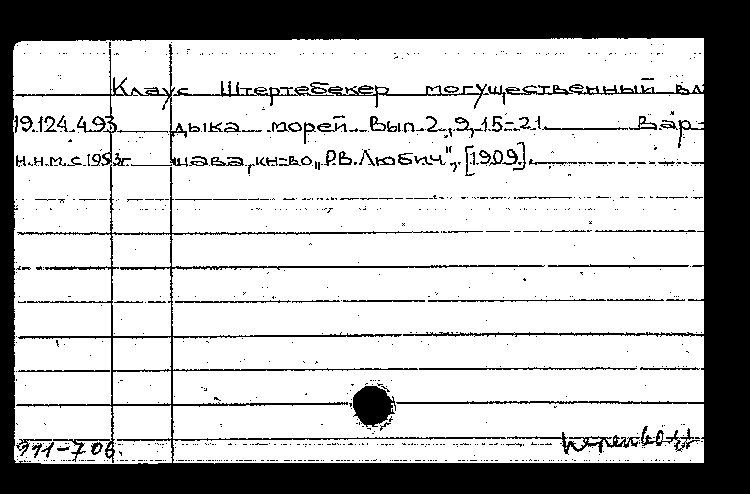 Клаус Штертебекер могущественный вл
19.124.4.93. дыка морей. Вып. 2, 9, 15-21. Вар-
н.н.м. с 1993г. шава, кн-во „Р.В. Любич", [1909].
911-706.